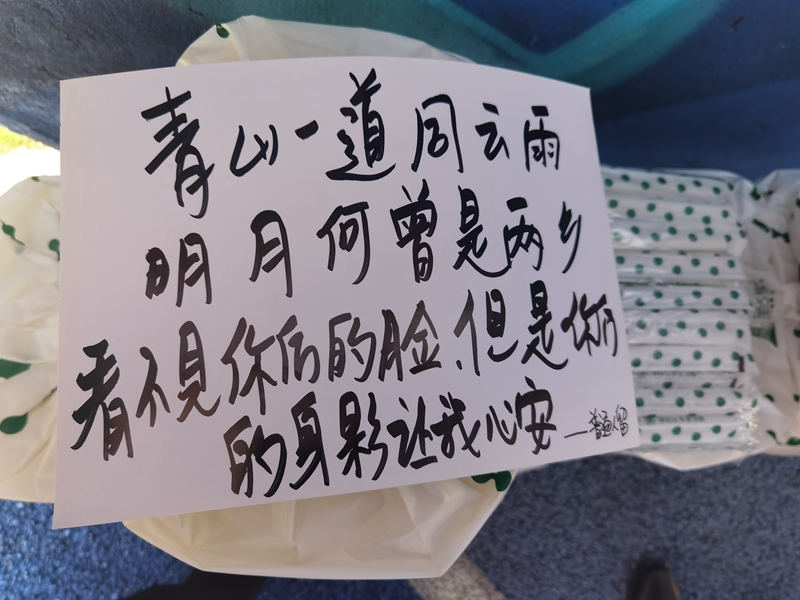 青山一道同云雨
明月何曾是两乡
看不見你们的脸、但是你们
的身影让我心安 —普通人留